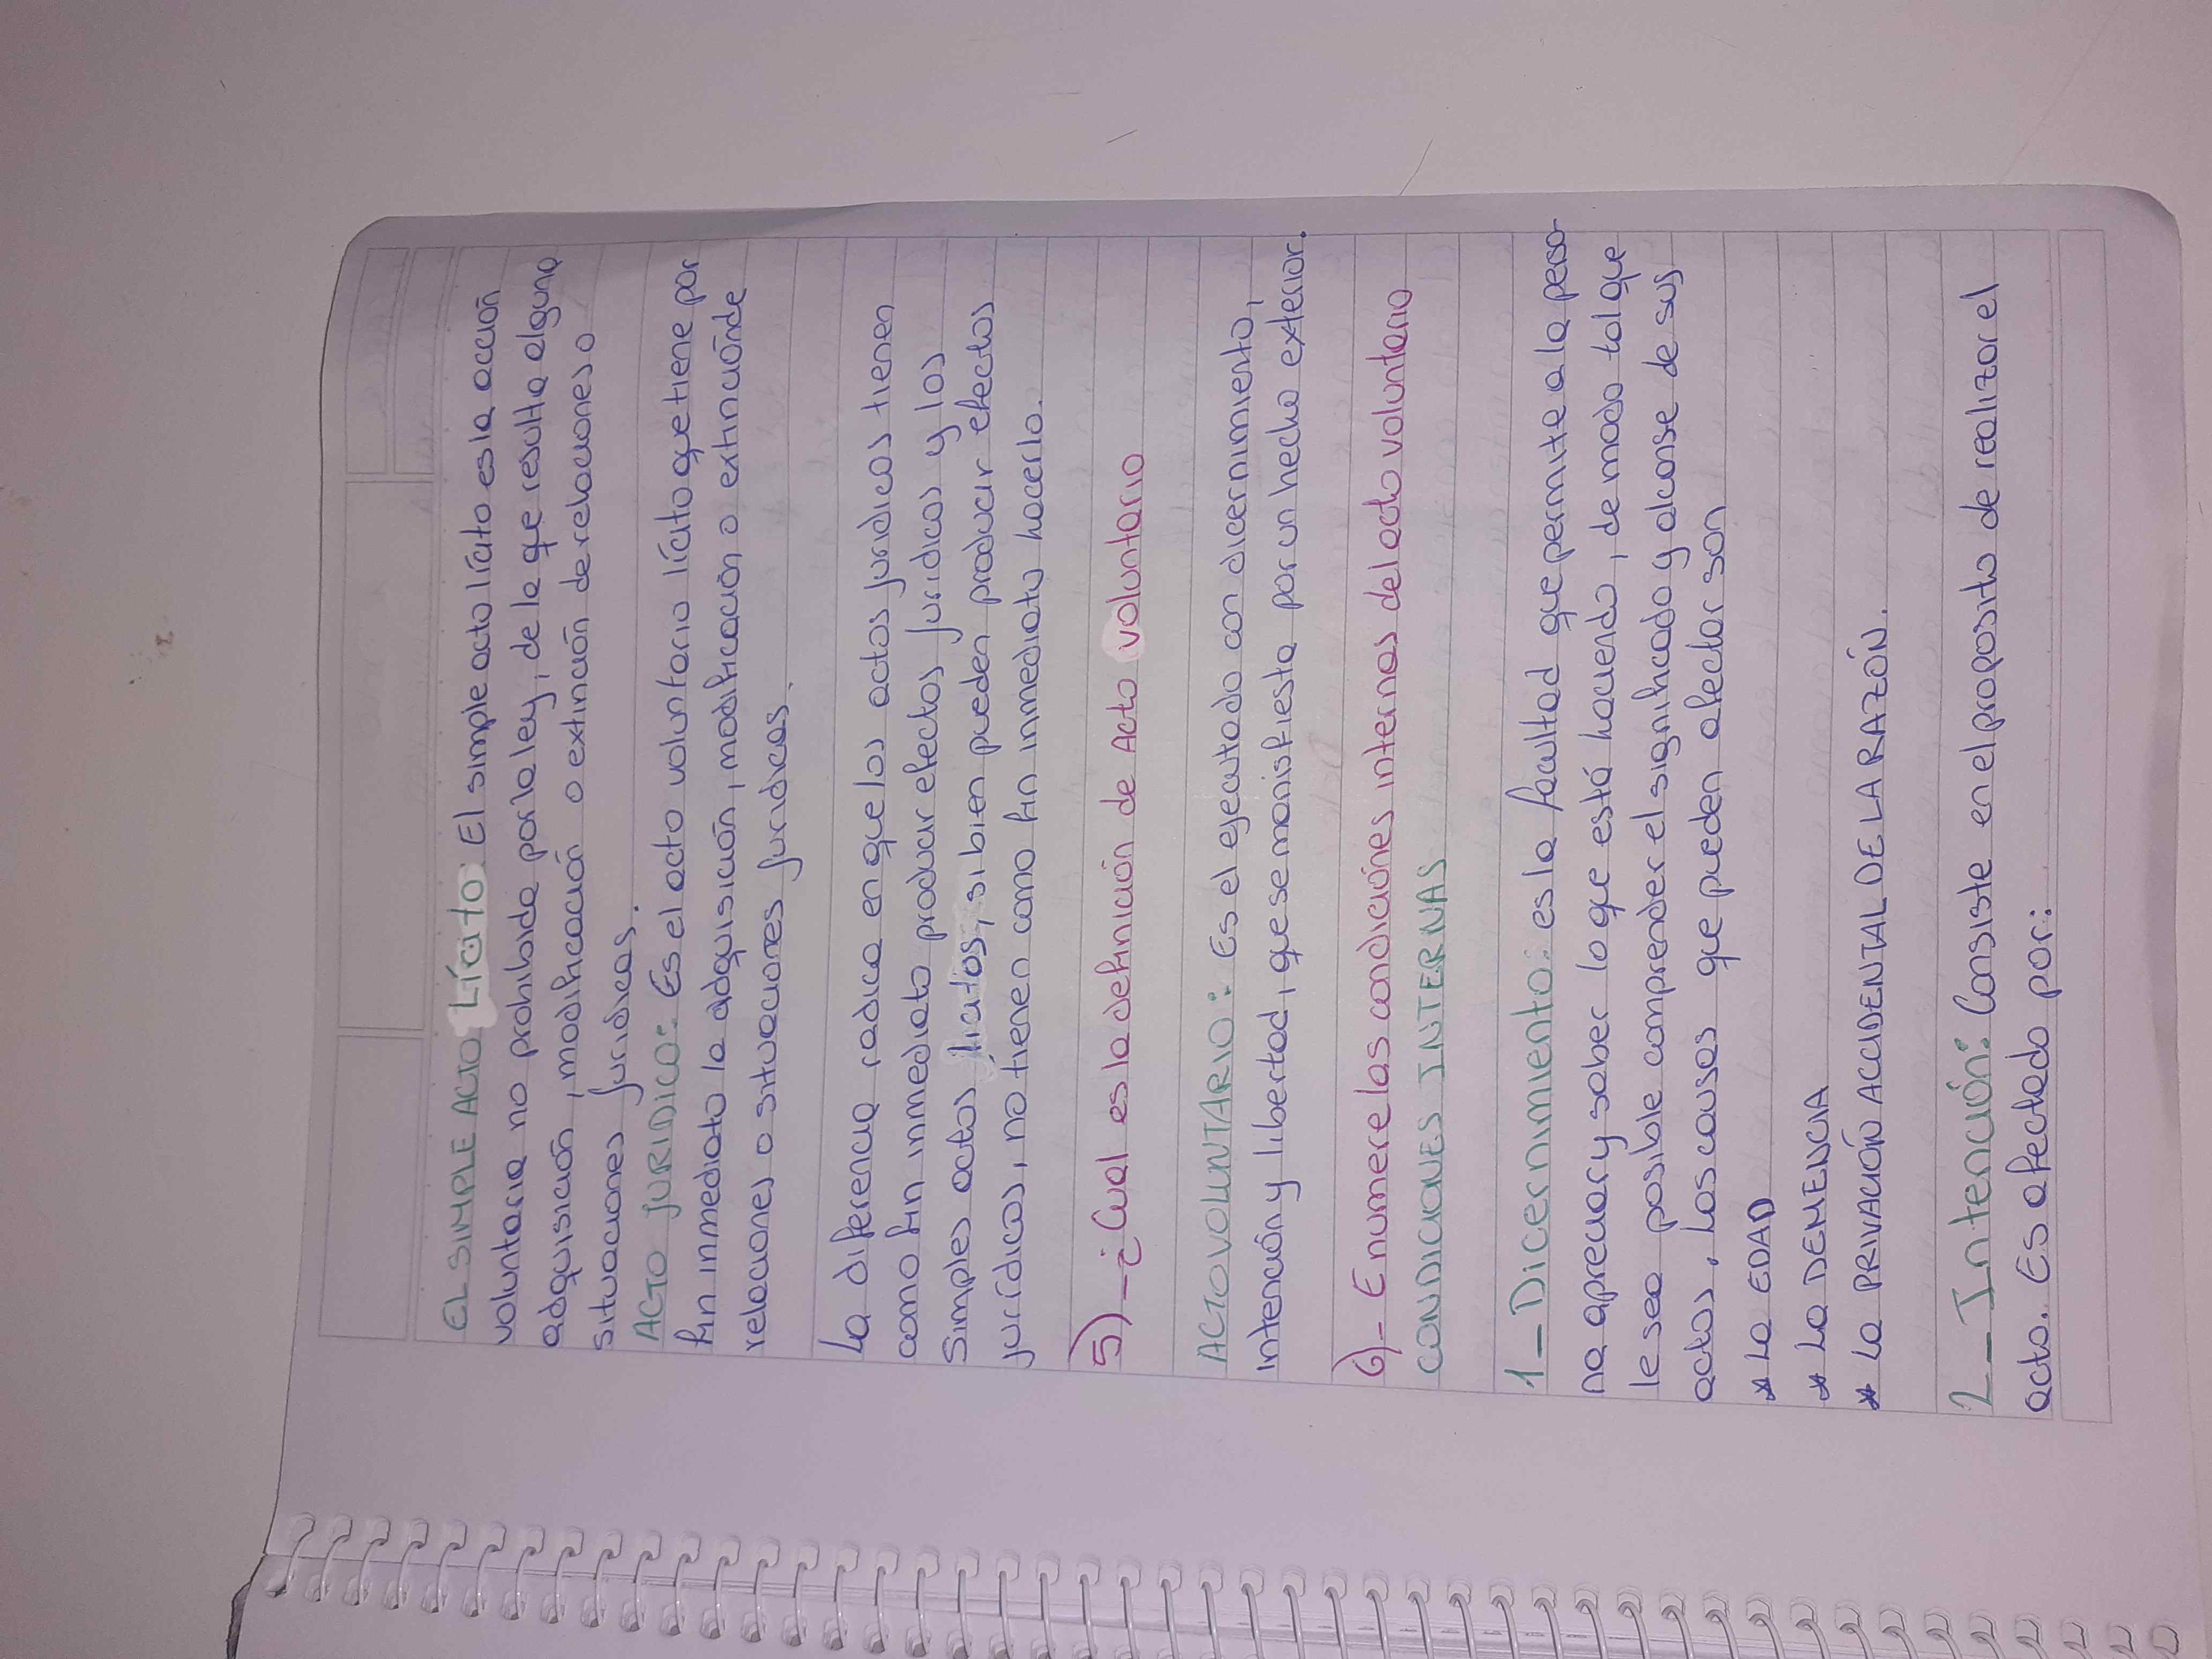 EL SIMPLE ACTO Lícito: El simple acto lícito es la acción
voluntaria no prohibida por la ley, de la que resulta alguna
adquisición, modificación o extinción de relaciones o
situaciones jurídicas.
ACTO JURIDICO: Es el acto voluntario lícito que tiene por
fin inmediato la adquisición, modificación o extinción de
relaciones o situaciones jurídicas.
La diferencia radica en que los actos jurídicos tienen
como fin inmediato producir efectos jurídicos y los
simples actos lícitos, si bien pueden producir efectos
jurídicos, no tienen como fin inmediato hacerlo.
5)-¿Cual es la definición de Acto voluntario
ACTO VOLUNTARIO: Es el ejecutado con dicernimiento,
intención y libertad, que se manisfiesta por un hecho exterior.
6)- Enumere las condiciones internas del acto voluntario
CONDICIONES INTERNAS
1_Dicernimiento: es la facultad que permite a la perso-
na apreciar y saber lo que está haciendo, de modo tal que
le sea posible comprender el significado y alcanse de sus
actos, Las causas que pueden afectar son
* La EDAD
* La DEMENCIA
* La PRIVACIÓN ACCIDENTAL DE LA RAZÓN.
2_Intención: Consiste en el proposito de realizar el
acto. Es afectado por: